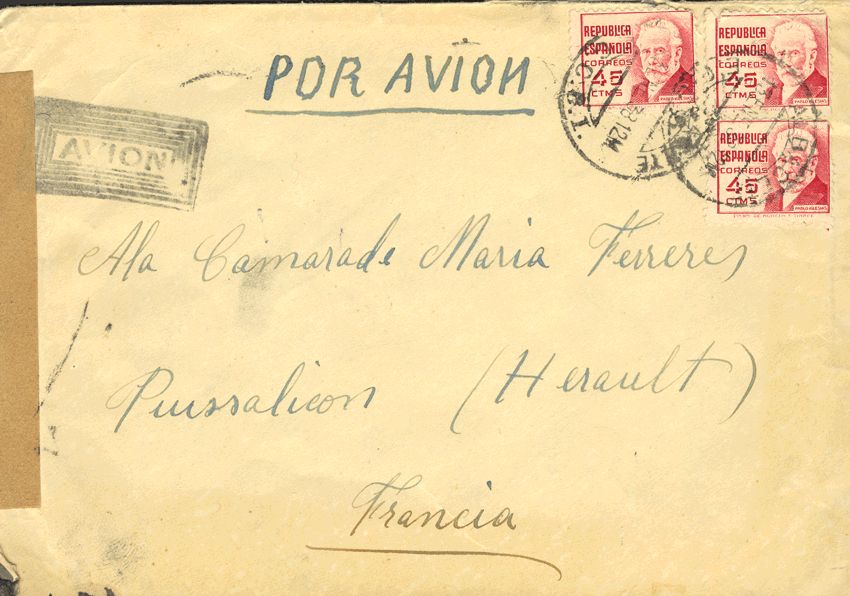 POR AVION
AVION
REPUBLICA
ESPAÑOLA
CORREOS
45
CTMS
PABLO IGLESIAS
REPUBLICA
ESPAÑOLA
CORREOS
45
CTMS
PABLO IGLESIAS
REPUBLICA
ESPAÑOLA
CORREOS
45
CTMS
PABLO IGLESIAS
12M
Ala Camarade Maria Ferreres
Puissalicon (Herault)
Francia